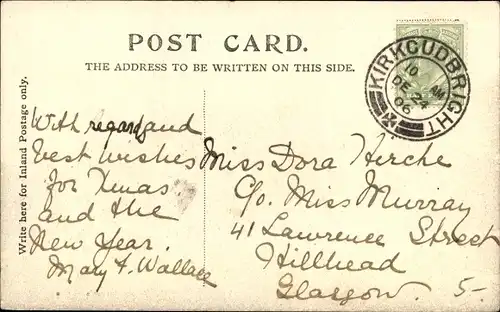 POST CARD.
THE ADDRESS TO BE WRITTEN ON THIS SIDE.
KIRKCUDBRIGHT
10 AM
DE 24
06
Write here for Inland Postage only.
With regard and
best wishes
for Xmas
and the
New Year.
Mary F. Wallace
Miss Dora Herche
C/o. Miss Murray
41 Lawrence Street
Hillhead
Glasgow. 5-